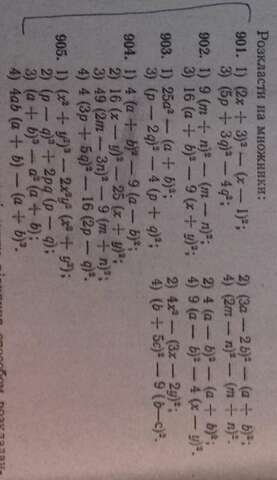 Розкласти на множники:
901. 1) (2x + 3)² — (x — 1)²; 2) (3a — 2b)² — (a + b)²;
3) (5p + 3q)² — 4q²; 4) (2m — n)² — (m + n)².
902. 1) 9 (m + n)² — (m — n)²; 2) 4 (a — b)² — (a + b)²;
3) 16 (a + b)² — 9 (x + y)²; 4) 9 (a — b)² — 4 (x — y)².
903. 1) 25a² — (a + b)²; 2) 4x² — (3x — 2y)²;
3) (p — 2q)² — 4 (p + q)²; 4) (b + 5c)² — 9 (b—c)².
904. 1) 4 (a + b)² — 9 (a — b)²;
2) 16 (x — y)² — 25 (x + y)²;
3) 49 (2m — 3n)² — 9 (m + n)²;
4) 4 (3p + 5q)² — 16 (2p — q)².
905. 1) (x² + y²)³ — 2x²y² (x² + y²);
2) (p — q)³ + 2pq (p — q);
3) (a + b)³ — a² (a + b);
4) 4ab (a + b) — (a + b)³.